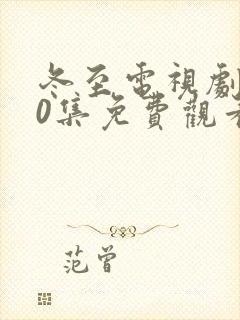 冬至電視劇
0集免費觀看
范曾